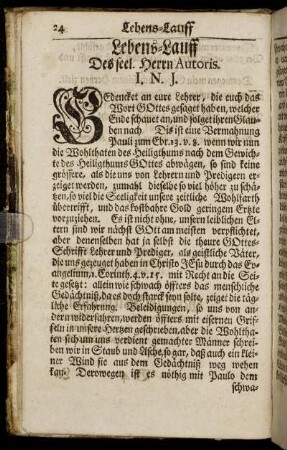 24 Lebens-Lauff
Lebens-Lauff
Des seel. Herrn Autoris.
I. N. J.
GEdencket an eure Lehrer, die euch das
Wort GOttes gesaget haben, welcher
Ende schauet an, und folget ihren Glau-
ben nach. Dis ist eine Vermahnung
Pauli zum Ebr. 13. v. 8. wenn wir nun
die Wohlthaten des Heiligthums nach dem Gewich-
te des Heiligthums GOttes abwägen, so sind keine
grössere, als die uns von Lehrern und Predigern er-
zeiget werden, zumahl dieselbe so viel höher zu schä-
tzen, so viel die Seeligkeit unsere zeitliche Wohlfarth
übertrifft, und das kostbahre Gold geringem Ertzte
vorzuziehen. Es ist nicht ohne, unsern leiblichen El-
tern sind wir nächst GOtt am meisten verpflichtet,
aber denenselben hat ja selbst die theure GOttes-
Schrifft Lehrer und Prediger, als geistliche Väter,
die uns gezeuget haben in Christo JEsu durch das Ev-
angelium, 1. Corinth. 4. v. 15. mit Recht an die Sei-
te gesetzt: allein wie schwach öffters das menschliche
Gedächtniß, da es doch starck seyn solte, zeiget die täg-
liche Erfahrung. Beleidigungen, so uns von an-
dern wiederfahren, werden öffters mit eisernen Grif-
feln in unsere Hertzen geschrieben, aber die Wohltha-
ten sich um uns verdient gemachter Männer schrei-
ben wir in Staub und Asche, so gar, daß auch ein klei-
ner Wind sie aus dem Gedächtniß weg wehen
kan. Derowegen ist es nöthig mit Paulo dem
schwa-